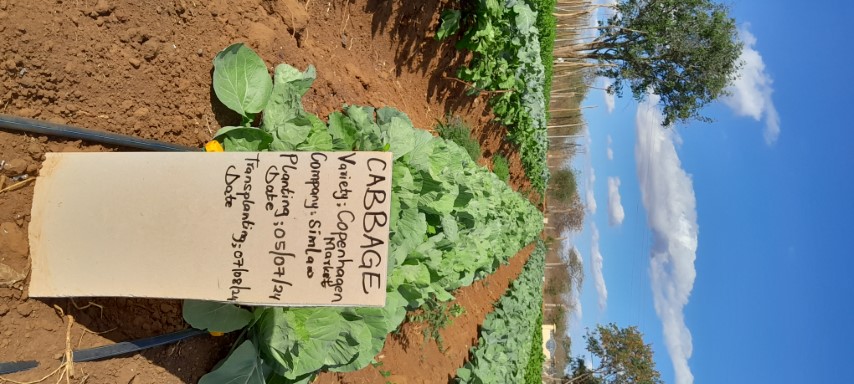 CABBAGE
Variety: Copenhagen
Market
Company: Simlaw
Planting : 05/07/24
Date
Transplanting: 07/08/24
Date